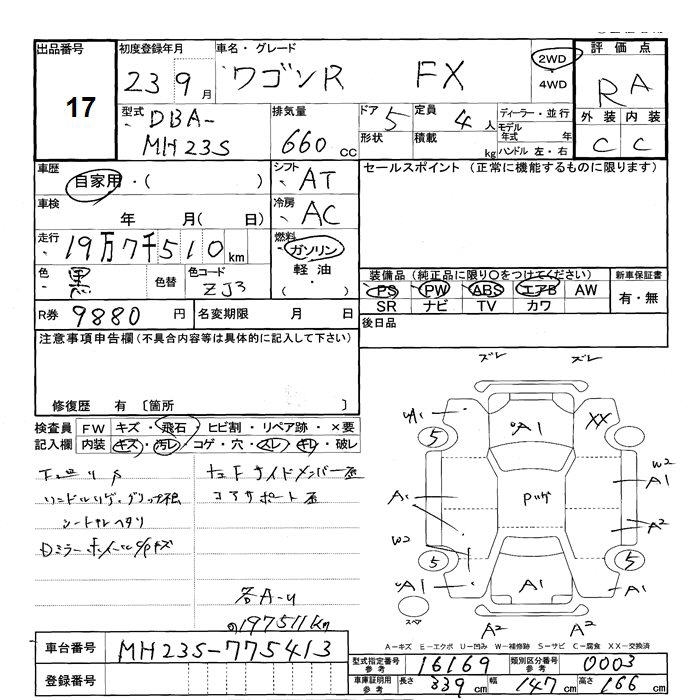 出品番号
17
初度登録年月
23 9月
車名・グレード
ワゴンR FX
2WD
4WD
評価点
RA
外装 内装
C C
型式
DBA-
MH23S
排気量
660 cc
ドア 5
形状
定員 4 人
積載 kg
ディーラー・並行
モデル年式 年
ハンドル 左・右
車歴
自家用・( )
車検
年 月( 日)
走行
19万7千510km
色 黒
色替
色コード
ZJ3
シフト
AT
冷房
AC
燃料
ガソリン
軽油
( ・ )
セールスポイント (正常に機能するものに限ります)
装備品 (純正品に限り○をつけてください)
PS PW ABS エアB AW
SR ナビ TV カワ
新車保証書
有・無
R券 9880 円
名変期限 / ・ /
後日品
注意事項申告欄(不具合内容等は具体的に記入して下さい)
修復歴 有 〔箇所 〕
検査員記入欄
FW キズ・飛石・ヒビ割・リペア跡・×要
内装 キズ・汚レ・コゲ・穴・スレ・キレ・破レ
シートヤレヘタリ
サイドメンバー
コアサポート
Dミラー ホイールC/Pキズ
197511km
ズレ ズレ
A1
XX
5
A1
A1
W2
A1
A1
A2
W2
5
5
A1
A1
A1
スペア
A2 A2
A=キズ E=エクボ U=凹み W=補修跡 S=サビ C=腐食 XX=交換済
車台番号 MH23S-775413
登録番号
型式指定番号 参考 16169
類別区分番号 参考 0003
車庫証明用 参考 長さ 339 cm 幅 147 cm 高さ 166 cm